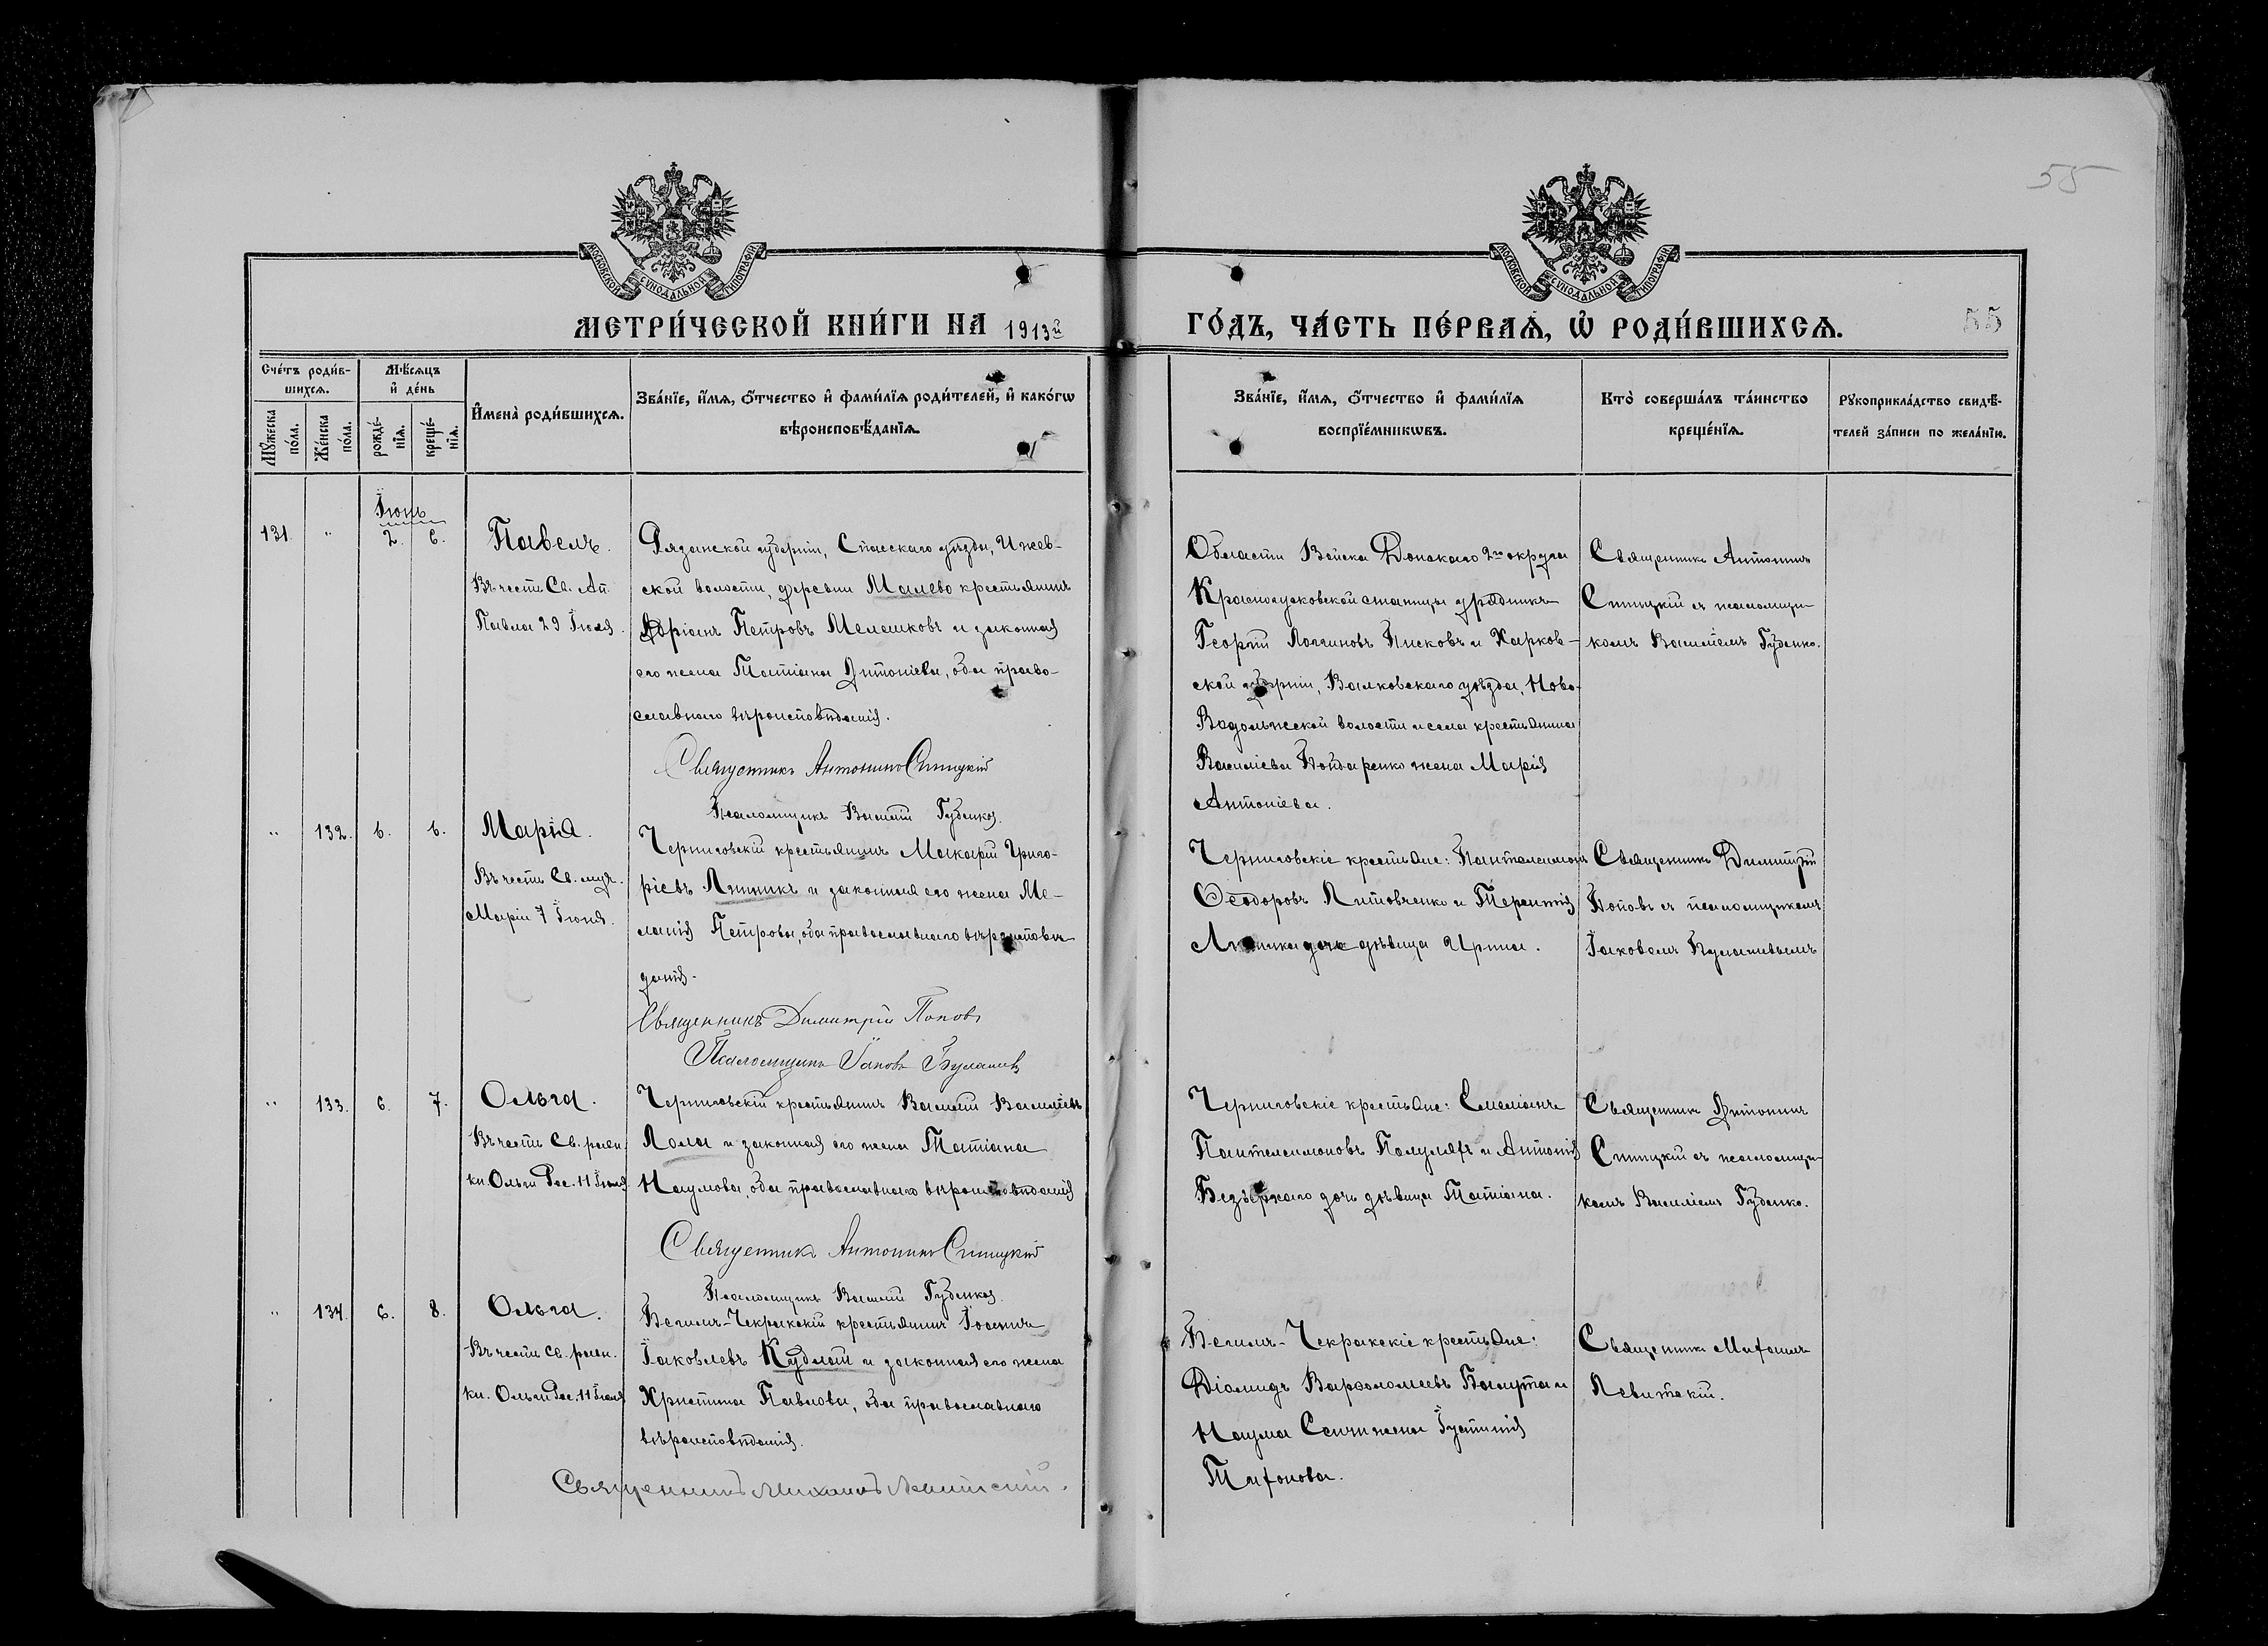 55
МОСКОВСКОЙ СѴНОДАЛЬНОЙ ТИПОГРАФІИ
МОСКОВСКОЙ СѴНОДАЛЬНОЙ ТИПОГРАФІИ
МЕТРИ́ЧЕСКОЙ КНИ́ГИ НА 1913й
ГО́ДЪ, ЧА́СТЬ ПЕ́РВАѦ, Ѡ҆ РОДИ́ВШИХСѦ.
55
Сче́тъ роди́в-
шихсѧ.
Мѣ́сѧцъ
и҆ де́нь
Мꙋ́жеска
по́ла.
Же́нска
по́ла.
рожде́-
нїѧ.
креще́-
нїѧ.
И҆мена̀ роди́вшихсѧ.
Зва́нїе, и҆́мѧ, ѻ҆́тчество и҆ фами́лїѧ роди́телей, и҆ како́гѡ
вѣроисповѣ́данїѧ.
Зва́нїе, и҆́мѧ, ѻ҆́тчество и҆ фами́лїѧ
воспрїе́мникѡвъ.
Кто̀ соверша́лъ та́инство
креще́нїѧ.
Рꙋкоприкла́дство свидѣ́-
телей за́писи по жела́нїю.
Іюнь
131. " 2. 6. Павелъ.
Въ честь Св. Ап.
Павла 29 Іюня.
Рязанской губерніи, Спасскаго уѣзда, Ижев-
ской волости, деревни Малево крестьянинъ
Адріанъ Петровъ Мелешковъ и законная
его жена Татіана Антоніева, оба право-
славнаго вѣроисповѣданія.
Священникъ Антонинъ Спицкій
Псаломщикъ Василій Губенко.
Области Войска Донскаго 2го округа
станицы урядникъ
Георгій Логгиновъ Писковъ и Харков-
ской губерніи, Валковскаго уѣзда, Ново-
Водолажской волости и села крестьянина
Василіева Бондаренко жена Марія
Антоніева.
Священникъ Антонинъ
Спицкій съ псаломщи-
комъ Василіемъ Губенко.
" 132. 6. 6. Марія.
Въ честь Св. муч.
Маріи 7 Іюня.
Черниговскій крестьянинъ Макарій Григо-
ріевъ Линникъ и законная его жена Ме-
ланія Петрова, оба православнаго вѣроисповѣ-
данія.
Священникъ Димитрій Поповъ
Псаломщикъ Іаковъ
Черниговскіе крестьяне: Пантелеимонъ
Ѳеодоровъ Литовченко и Терентія
Линника дочь дѣвица Ирина.
Священникъ Димитрій
Поповъ съ псаломщикомъ
Іаковомъ
" 133. 6. 7. Ольга.
Въ честь Св. равн.
кн. Ольги Рос. 11 Іюля
Черниговскій крестьянинъ Василій Василіевъ
Лола и законная его жена Татіана
Наумова, оба православнаго вѣроисповѣданія
Священникъ Антонинъ Спицкій
Псаломщикъ Василій Губенко.
Черниговскіе крестьяне: Емеліанъ
Пантелеимоновъ Полуляхъ и Антонія
дочь дѣвица Татіана.
Священникъ Антонинъ
Спицкій съ псаломщи-
комъ Василіемъ Губенко.
" 134. 6. 8. Ольга.
Въ честь св. равн.
кн. Ольги Рос. 11 Іюля
Бегимъ-Чекракскій крестьянинъ Іосифъ
Іаковлевъ Кудлай и законная его жена
Христина Павлова, оба православнаго
вѣроисповѣданія.
Священникъ Михаилъ Левитскій.
Бегимъ-Чекракскіе крестьяне:
Діомидъ Варѳоломеевъ и
Наума жена Іустинія
Тихонова.
Священникъ Михаилъ
Левитскій.